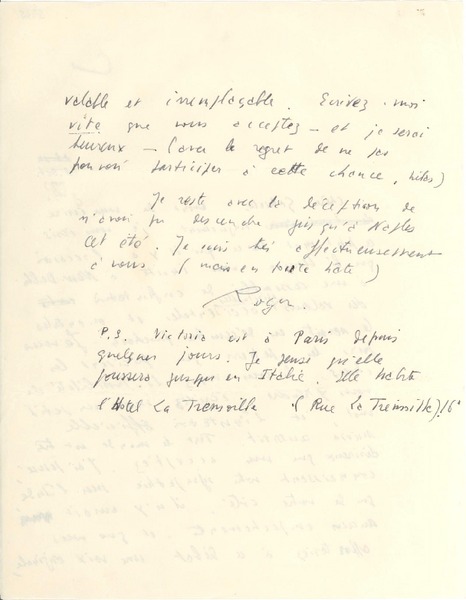 valable et irremplaçable. Ecrivez-moi
vite que vous acceptez — et je serai
heureux — (avec le regret de ne pas
pouvoir participer à cette chance, hélas)
Je reste avec la déception de
n'avoir pu descendre jusqu'à Naples
cet été. Je suis très affectueusement
à vous (mais en toute hâte)
Roger.
P.S. Victoria est à Paris depuis
quelques jours. Je pense qu'elle
poussera jusque en Italie. Elle habite
l'Hotel La Tremoille (Rue La Tremoille). 16e